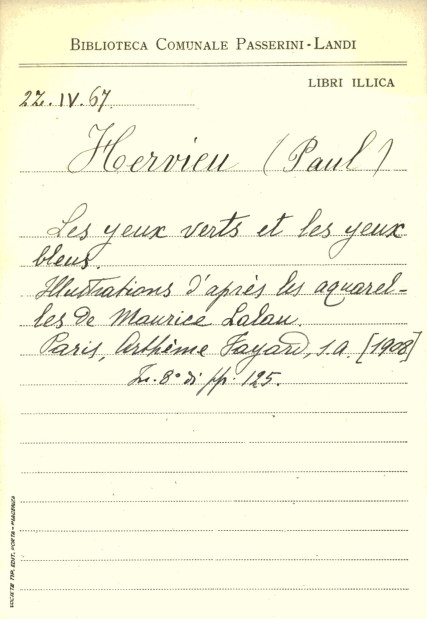 BIBLIOTECA COMUNALE PASSERINI-LANDI
LIBRI ILLICA
22.IV.67
Hervieu (Paul)
Les yeux verts et les yeux
bleus.
Illustrations d'après les aquarel-
les de Maurice Lalau.
Paris, Arthème Fayard, s.a. [1908]
In. 8° di pp. 125.
SOCIETÀ TIP. EDIT. PORTA - PIACENZA